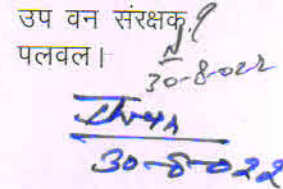 उप वन संरक्षक,
पलवल।
30-8-022
30-8-022